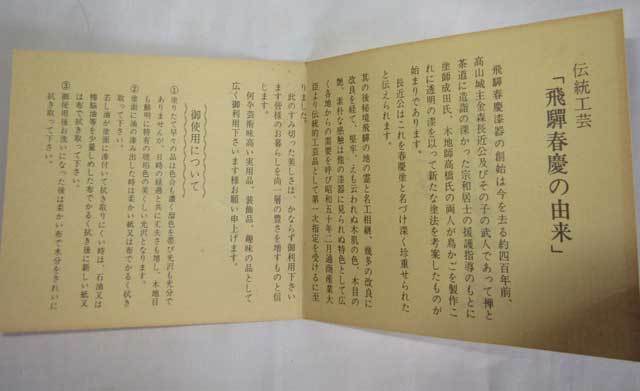 伝統工芸
「飛驒春慶の由来」
飛驒春慶漆器の創始は今を去る約四百年前、
高山城主金森長近公及びその子の武人であって禅と
茶道に造詣の深かった宗和居士の援護指導のもとに
塗師成田氏、木地師高橋氏の両人が鳥かごを製作こ
れに透明の漆を以って新たな塗法を考案したものが
始まりであります。
長近公はこれを春慶塗と名づけ深く珍重せられた
と伝えられます。
其の後秘境飛驒の地の霊と名工相継、幾多の改良に
改良を経て、堅牢、えも云われぬ木肌の色、木目の
艶、素朴な感触は他の漆器に見られぬ特色として広
く各地からの需要を呼び昭和五十年二月通商産業大
臣より伝統的工芸品として第一次指定を受けるに至
りました。
此のすみ切った美しさは、かならず御利用下さい
ます皆様のお暮らしを尚一層の豊さを増すものと信
じます。
何卒芸術味高い実用品、装飾品、趣味の品として
広く御利用下さいます様お願い申上げます。
御使用について
①塗りたて早々の品は色合も濃く溜色を帯び光沢も充分で
ありませんが、日時の経過と共に丈夫さも増し、木地目
も鮮明に特有の琥珀色の美くしい光沢となります。
②塗面に油の滲み出した時は柔かい紙又は布でかるく拭き
取って下さい。
若し油が塗面に漆付いて拭き取りにくい時は、石油又は
椿脳油等を少量しめした布でかるく拭き後に新しい紙又
は布で拭き取って下さい。
③御使用後お洗いになった後は柔かい布で水分をきれいに
拭き取って下さい。